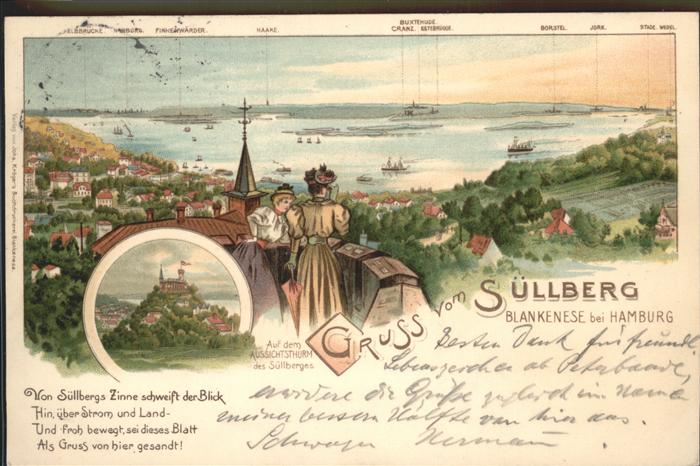 ELBBRÜCKE. HAMBURG. FINKENWÄRDER. HAAKE. BUXTEHUDE. CRANZ. ESTEBRÜGGE. BORSTEL. JORK. STADE. WEDEL.
Auf dem
AUSSICHTSTHURM
des Süllberges
GRUSS vom SÜLLBERG
BLANKENESE bei HAMBURG
Von Süllbergs Zinne schweift der Blick
Hin, über Strom und Land-
Und froh bewegt, sei dieses Blatt
Als Gruss von hier gesandt!
Besten Dank für freundl
Lebenszeichen ab
erwidere die Grüße zugleich im Namen
meiner bessern Hälfte von hier aus.
Schwager Hermann.